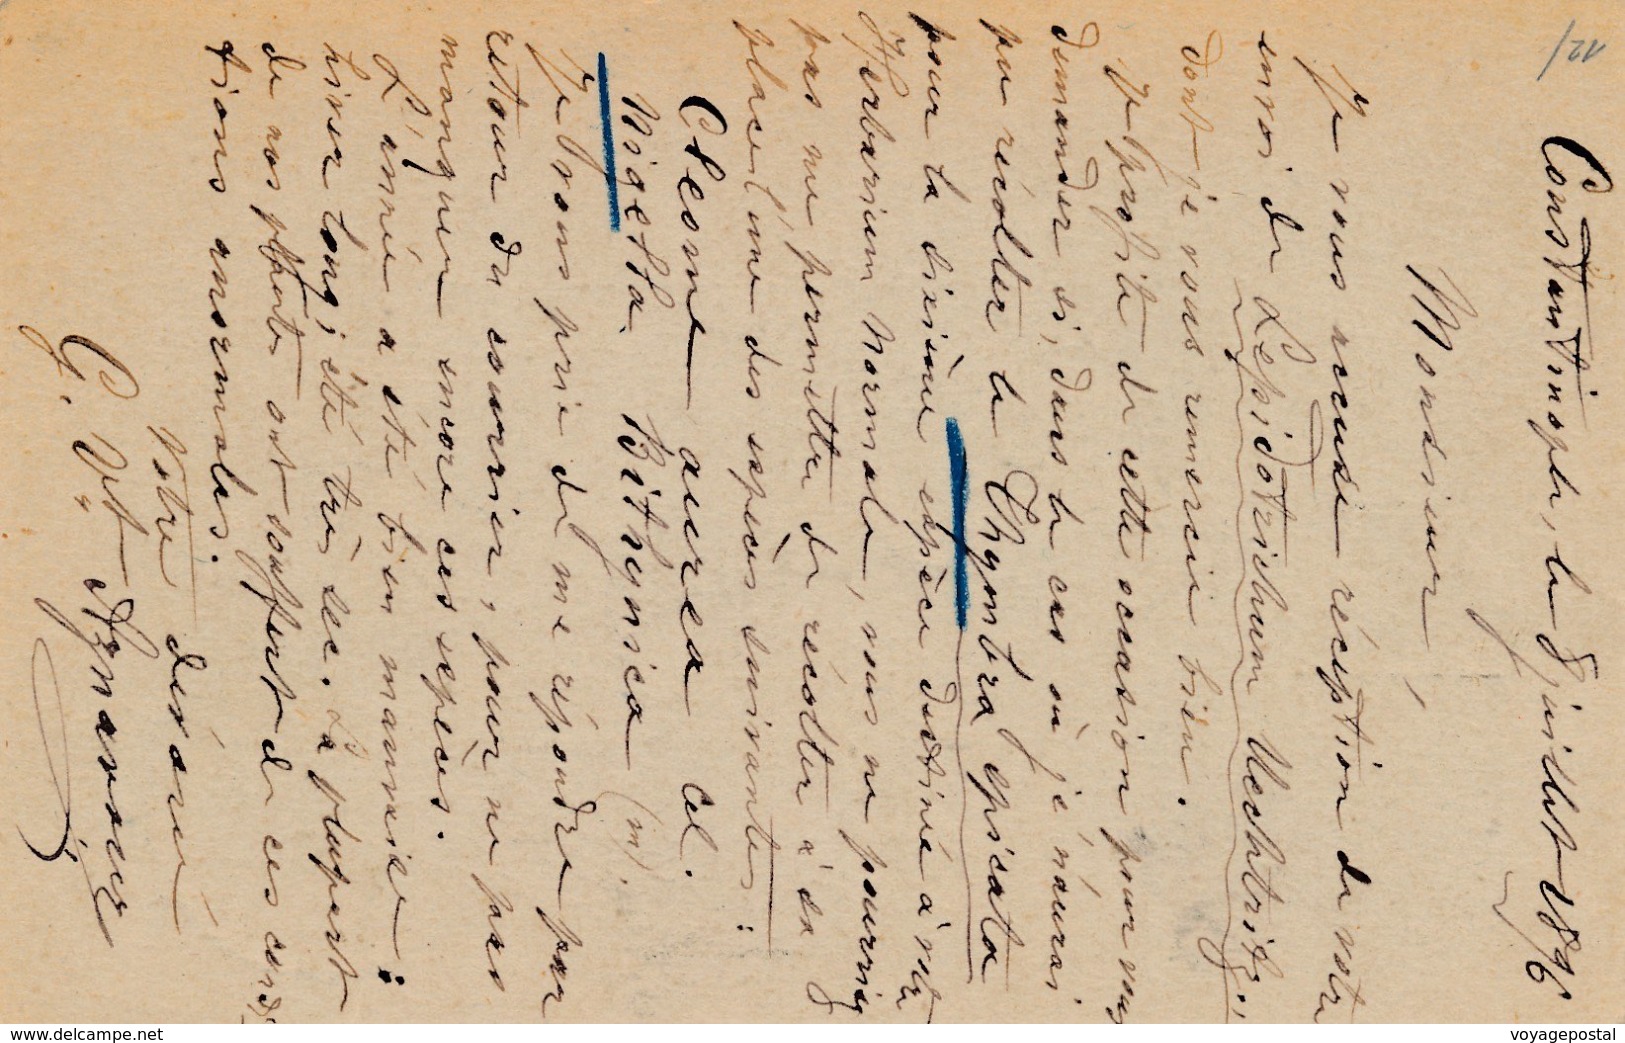 12/
Constantinople, le 8 juillet 1896
Monsieur,
Je vous accuse réception de votre
envoi de Lepidotrichum Uechtritz.,
dont je vous remercie bien.
Je profite de cette occasion pour vous
demander si, dans le cas où je n'aurai
pu récolter le Thymbra spicata
pour la dixième espèce destiné à votre
Herbarium Normale, vous ne pourriez
pas me permettre de récolter à sa
place l'une des espèces suivantes :
Cleome aurea Cel.
Nigella Bithynica (m).
Je vous prie de me répondre par
retour du courrier, pour ne pas
manquer encore ces espèces.
L'année a été bien mauvaise :
hiver long; été très sec. La plupart
de nos plantes ont souffert de ces condi-
tions anormales.
Votre dévoué
G. V. Aznavour
delcampe.net
voyagepostal